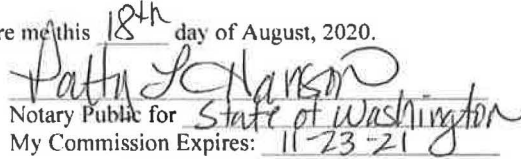 re me this 18th day of August, 2020.
Patty L Hanson
Notary Public for State of Washington
My Commission Expires: 11-23-21